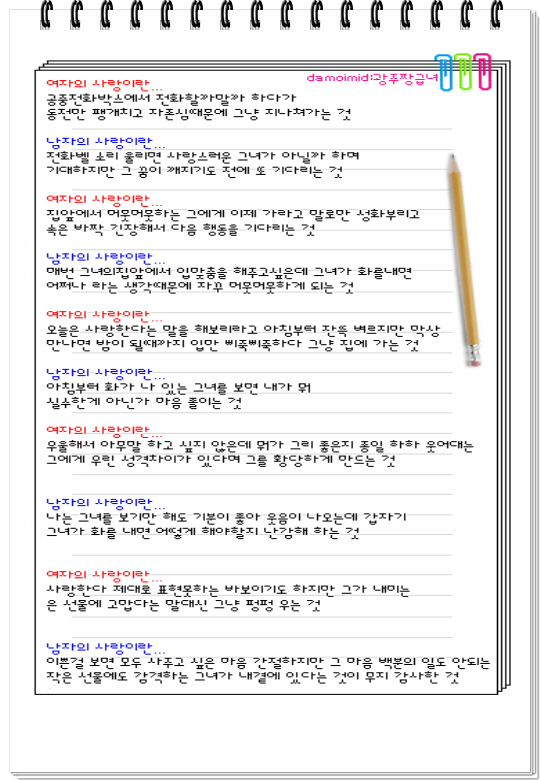 damoimid:광주짱급녀
여자의 사랑이란...
공중전화박스에서 전화할까말까 하다가
동전만 팽개치고 자존심때문에 그냥 지나쳐가는 것
남자의 사랑이란...
전화벨 소리 울리면 사랑스러운 그녀가 아닐까 하며
기대하지만 그 꿈이 깨지기도 전에 또 기다리는 것
여자의 사랑이란...
집앞에서 머뭇머뭇하는 그에게 이제 가라고 말로만 성화부리고
속은 바짝 긴장해서 다음 행동을 기다리는 것
남자의 사랑이란...
매번 그녀의집앞에서 입맞춤을 해주고싶은데 그녀가 화를내면
어쩌나 라는 생각때문에 자꾸 머뭇머뭇하게 되는 것
여자의 사랑이란...
오늘은 사랑한다는 말을 해보리라고 아침부터 잔뜩 벼르지만 막상
만나면 밤이 될때까지 입만 삐죽삐죽하다 그냥 집에 가는 것
남자의 사랑이란...
아침부터 화가 나 있는 그녀를 보면 내가 뭐
실수한게 아닌가 마음 졸이는 것
여자의 사랑이란...
우울해서 아무말 하고 싶지 않은데 뭐가 그리 좋은지 종일 하하 웃어대는
그에게 우린 성격차이가 있다며 그를 황당하게 만드는 것
남자의 사랑이란...
나는 그녀를 보기만 해도 기분이 좋아 웃음이 나오는데 갑자기
그녀가 화를 내면 어떻게 해야할지 난감해 하는 것
여자의 사랑이란...
사랑한다 제대로 표현못하는 바보이기도 하지만 그가 내미는
은 선물에 고맙다는 말대신 그냥 펑펑 우는 것
남자의 사랑이란...
이쁜걸 보면 모두 사주고 싶은 마음 간절하지만 그 마음 백분의 일도 안되는
작은 선물에도 감격하는 그녀가 내곁에 있다는 것이 무지 감사한 것